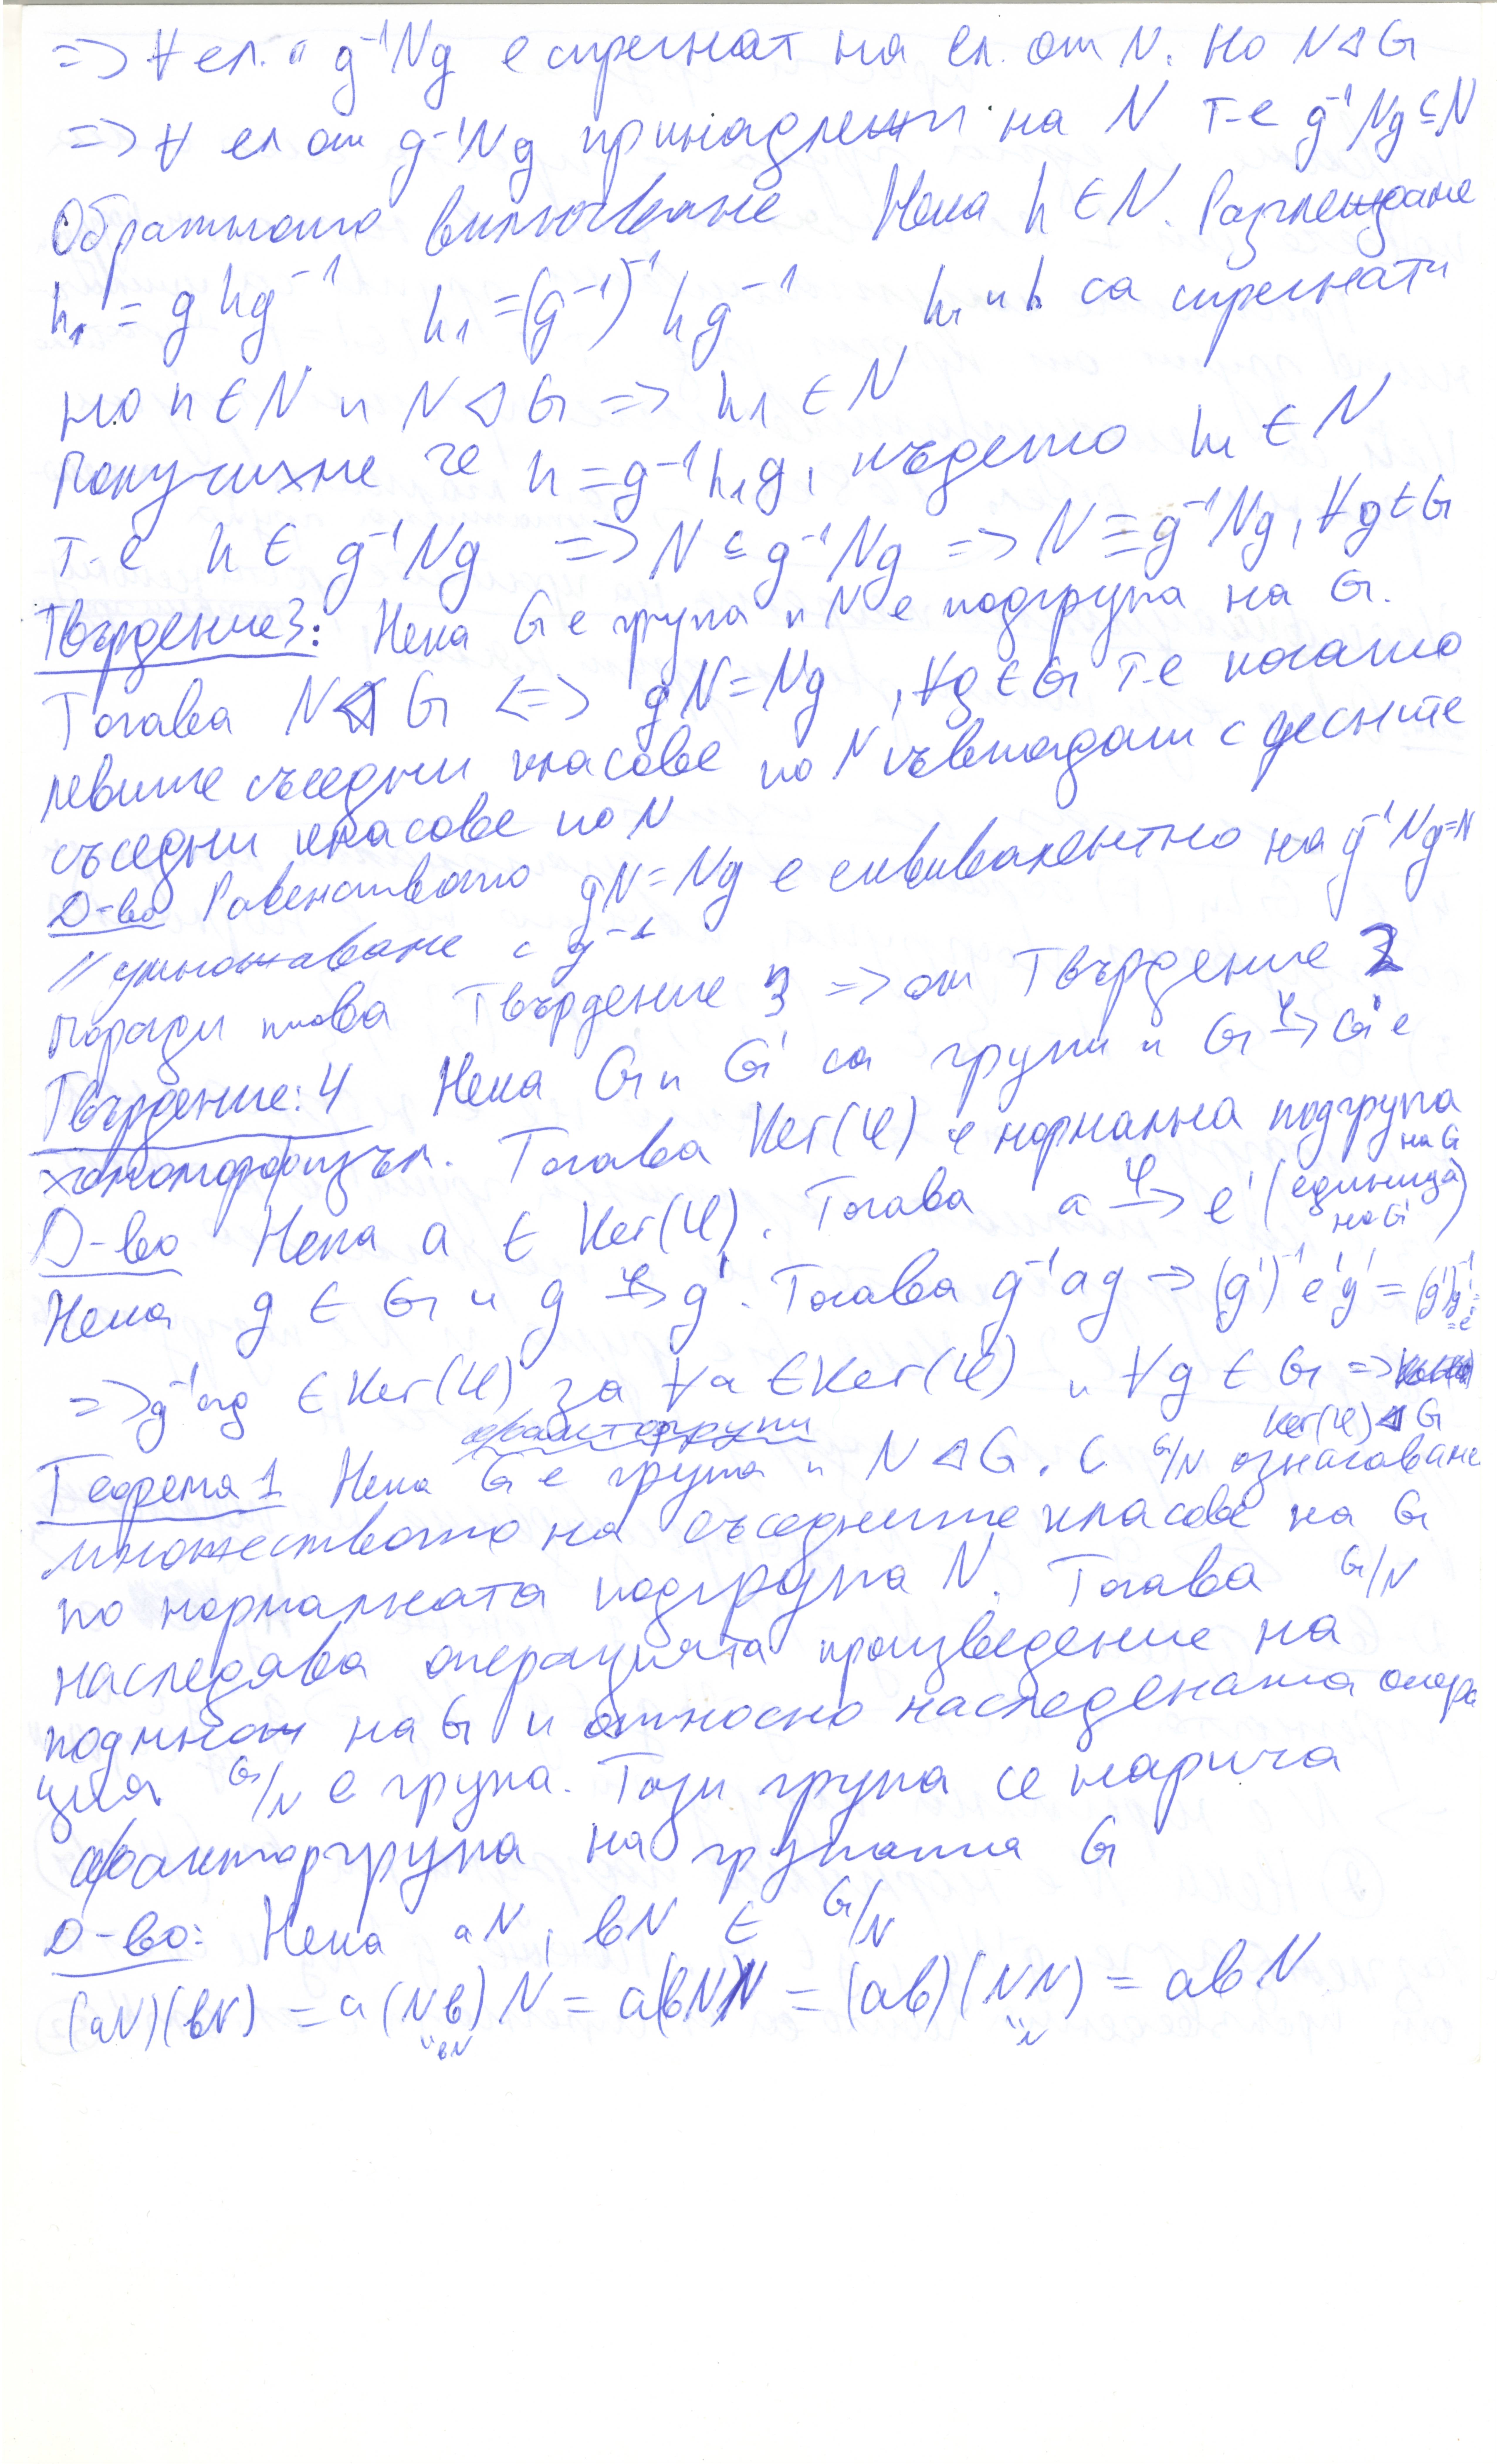 => ∀ ел. g⁻¹Ng е спрегнат на ел. от N. Но N ⊲ G
=> ∀ ел от g⁻¹Ng принадлежи на N т-е g⁻¹Ng ⊆ N
Обратното включване Нека h ∈ N. Разглеждаме
h₁ = ghg⁻¹ h₁ = (g⁻¹)⁻¹hg⁻¹ h₁ и h са спрегнати
но h ∈ N и N ⊲ G => h₁ ∈ N
Получихме че h = g⁻¹h₁g, където h₁ ∈ N
т-е h ∈ g⁻¹Ng => N ⊆ g⁻¹Ng => N = g⁻¹Ng, ∀g ∈ G
Твърдение 3: Нека G е група и N е подгрупа на G.
Тогава N ⊲ G <=> gN = Ng, ∀g ∈ G т-е когато
левите съседни класове по N съвпадат с десните
съседни класове по N
Д-во Равенството gN = Ng е еквивалентно на g⁻¹Ng = N
// умножаваме с g⁻¹
Поради това Твърдение 3 => от Твърдение 2
Твърдение: 4 Нека G и G' са групи и G →φ G' е
хомоморфизъм. Тогава Ker(φ) е нормална подгрупа на G
Д-во Нека a ∈ Ker(φ). Тогава a →φ e' (единица на G')
Нека g ∈ G и g →φ g'. Тогава g⁻¹ag → (g')⁻¹e'g' = (g')⁻¹g' = e'
=> g⁻¹ag ∈ Ker(φ) за ∀a ∈ Ker(φ) и ∀g ∈ G =>
Ker(φ) ⊲ G
факторгрупи
Теорема 1 Нека G е група и N ⊲ G. С G/N означаваме
множеството на съседните класове на G
по нормалната подгрупа N. Тогава G/N
наследява операцията произведение на
подмнож на G и относно наследената опера
ция G/N е група. Тази група се нарича
факторгрупа на групата G
Д-во: Нека aN, bN ∈ G/N
(aN)(bN) = a(Nb)N = a(bN)N = (ab)(NN) = abN
"bN "N